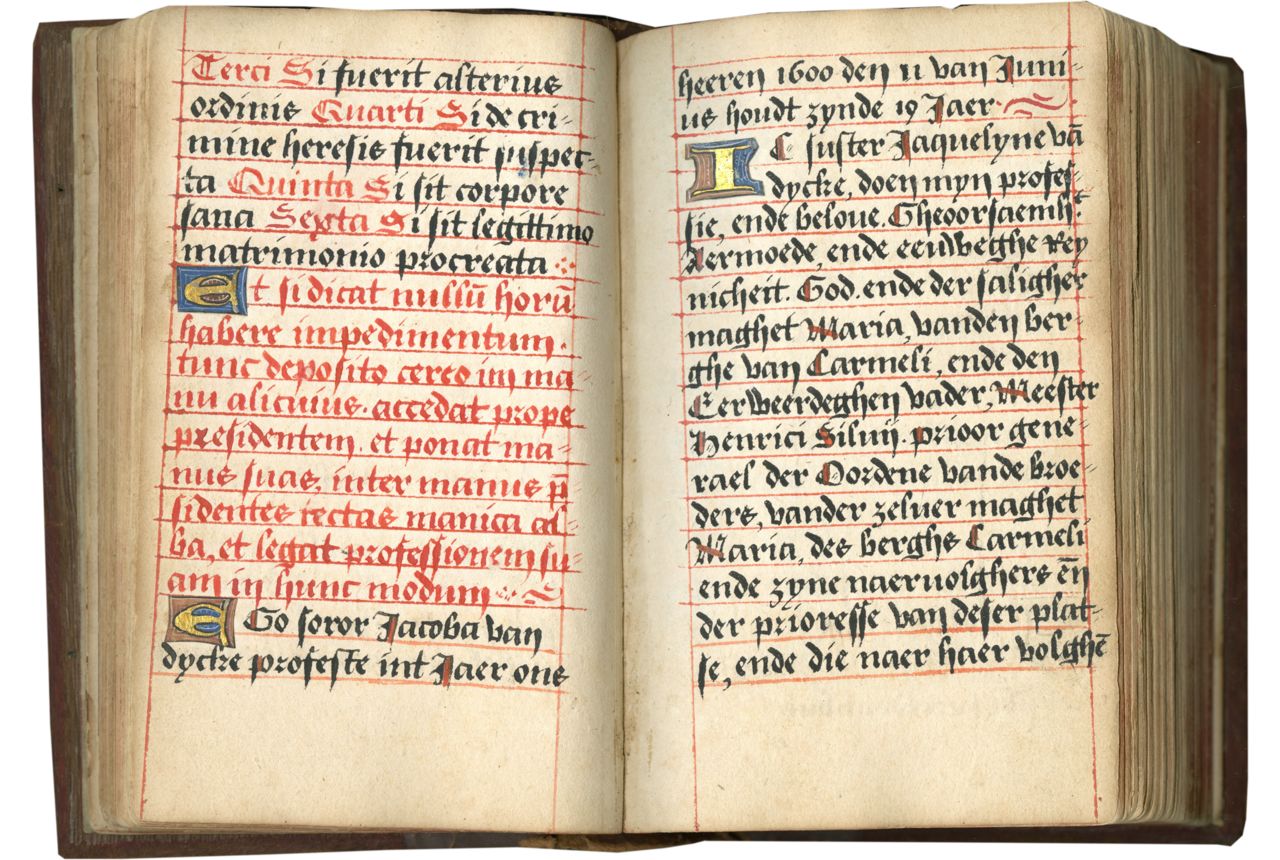 Terci Si fuerit alterius
ordinis Quarti Si de cri-
mine heresis fuerit suspec-
ta Quinta Si sit corpore
sana Sexta Si sit legittimo
matrimonio procreata
Et si dicat nullū horū
habere impedimentum.
tunc deposito cereo im ma-
nu alicuius. accedat prope
presidentem. et ponat ma-
nus suas, inter manus p̄-
sidentes tectas manica al-
ba, et legat professionem su-
am in hunc modum
EGo soror Jacoba van
dycke professe int Jaer ons
heeren 1600 den 11 van Juni-
us houdt zynde 19 Jaer
IC suster Jaquelyne vā
dycke, doen myn profes-
sie, ende beloue. Gheoorsaemh.t
Aermoede, ende eeuweghe Rey
nicheit. God. ende der saligher
maghet Maria, vanden ber-
ghe van Carmeli, ende den
Eerweerdeghen vader, Meester
Henrici Siluij. prioor gene-
rael der Oordene vande broe-
ders, vander zeluer maghet
Maria, des berghs Carmeli
ende zyne naeruolghers eñ
der prioresse van deser plat-
se, ende die naer haer volghē